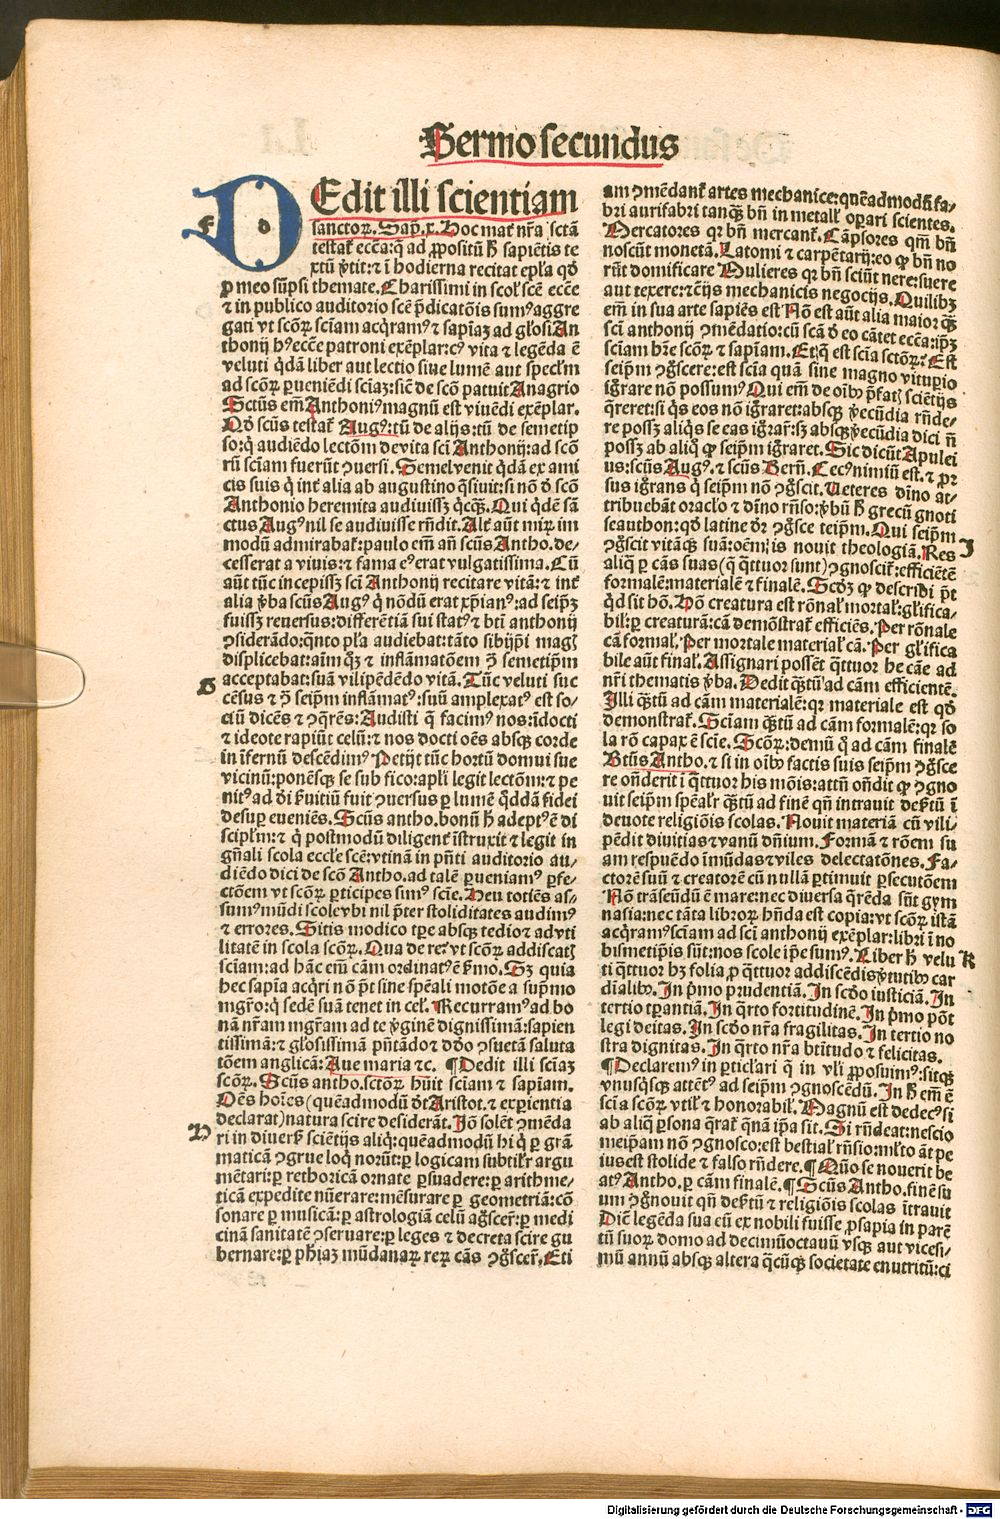 Sermo secundus
DEdit illi scientiam
sanctoꝝ. Sap̄. x. Hoc mat̄ nr̄a sctā
testat̄ ecc̄a: q̄ ad ꝓpositū
recitat ep̄la qd̓
meo sūpsi themate. Charissimi in scol̓ scē ecc̄e
⁊ in publico auditorio scē p̄dicatōis sumꝰ aggre
gati vt scōꝝ sciam acq̄ramꝰ ⁊ sapiaꝫ ad gl̓osi An
thonij hꝰ ecc̄e patroni exēplar: cꝰ vita ⁊ legēda ē
veluti qd̓ā liber aut lectio siue lumē aut specl̓m
ad scōꝝ ꝑueniēdi sciaꝫ: sic̄ de scō patuit Anagrio
Sctūs em̄ Anthoniꝰ magnū est viuēdi exēplar.
Qd̓ scūs testat̄ Augꝰ: tū de alijs: tū de semetip
so: q̄ audiēdo lectōm de vita sci Anthonij: ad scō
rū sciam fuerūt ꝯuersi. Semel venit qd̓ā ex ami
cis suis q̄ int̄ alia ab augustino q̄siuit: si nō d̓ scō
Anthonio heremita audiuissꝫ q̄cꝙ. Qui qd̓ē sā
ctus Augꝰ nil se audiuisse rn̄dit. Alt̄ aūt miꝝ im
modū admirabat̄: paulo em̄ añ scūs Antho. de⸗
cesserat a viuis: ⁊ fama eꝰ erat vulgatissima. Cū
aūt tūc incepissꝫ sci Anthonij recitare vitā: ⁊ int̄
alia v̓ba scūs Augꝰ q̄ nōdū erat xp̄ianꝰ: ad seipꝫ
fuissꝫ reuersus: differētiā sui statꝰ ⁊ bt̄i anthonij
ꝯsiderādo: q̄nto pl̓a audiebat: tāto sibijpi magꝭ
displicebat: aīm qꝫ ⁊ inflāmatōem ꝯ̄ semetip̄m
acceptabat: suā vilipēdēdo vitā. Tūc veluti suc
B
cēsus ⁊ ꝯ̄ seip̄m inflāmatꝰ: suū amplexatꝰ est so⸗
ciū dicēs ⁊ ꝯq̄rēs: Audisti q̄ facimꝰ nos: īdocti
⁊ ideote rapiūt celū: ⁊ nos docti oēs absꝙ corde
in īfernū descēdimꝰ. Petijt tūc hortū domui sue
vicinū: ponēsꝙ se sub fico: apl̓i legit lectōm: ⁊ pe
nitꝰ ad d̓i fuit ꝯuersus ꝑ lumē qd̓dā fidei
desuꝑ eueniēs. Scūs antho. bonū adeptꝰ ē di
scipl̓m: ⁊ q̄ postmodū diligent̄ īstruxit ⁊ legit in
gn̄ali scola eccl̓e scē: vtinā in pn̄ti auditorio au⸗
diēdo dici de scō Antho. ad talē ꝑueniamꝰ ꝑfe⸗
ctōem vt scōꝝ ꝑticipes simꝰ scīe. Heu totiēs as⸗
sumꝰ mūdi scole vbi nil p̄ter stoliditates audimꝰ
⁊ errores. Sitis modico tp̄e absꝙ tedio ⁊ ad vti
litatē in scola scōꝝ. Qua de re: vt scōꝝ addiscatꝭ
sciam: ad hāc em̄ cām ordinatꝰ ē Sꝫ quia
hec sapīa acq̄ri nō pt̄ sine sp̄eali motōe a sup̄mo
mgr̄o: q̄ sedē suā tenet in cel̓. Recurramꝰ ad bo
nā nr̄am mgr̄am ad te v̓ginē dignissimā: sapien
tissimā: ⁊ gl̓osissimā pn̄tādo ⁊ dd̓o ꝯsuetā saluta
tōem anglicā: Aue maria ⁊c. ¶ Dedit illi sciaꝫ
scōꝝ. Scūs antho. sctōꝝ hūit sciam ⁊ sapiam.
Oēs hoīes (quēadmodū d̓t Aristot. ⁊ exꝑientia
declarat) natura scire desiderāt. Iō solēt ꝯmēda
ri in diuers̄ sciētijs aliq̄: quēadmodū hi q̄ ꝑ grā
maticā ꝯgrue loq̄ norūt: ꝑ logicam subtil̓r argu
mētari: ꝑ rethoricā ornate ꝑsuadere: ꝑ arithme⸗
ticā expedite nūerare: mēsurare ꝑ geometriā: cō
sonare ꝑ musicā: ꝑ astrologiā celū ag̓scer̄: ꝑ medi
cinā sanitatē ꝯseruare: ꝑ leges ⁊ decreta scire gu
bernare: ꝑ ph̓iaꝫ mūdanaꝝ reꝝ cās ꝯg̓scer̄. Eti
am ꝯmēdant̄ artes mechanice: quēadmodū fa⸗
bri aurifabri tanꝙ bn̄ in metall̓ oꝑari scientes.
Mercatores qꝛ bn̄ mercant̄. Cāpsores qm̄ bn̄
noscūt monetā. Latomi ⁊ carpētarij: eo ꝙ bn̄ no
rūt domificare Mulieres qꝛ bn̄ sciūt nere: suere
aut texere: ⁊ c̄tijs mechanicis negocijs. Quilibꝫ
em̄ in sua arte sapiēs est Nō est aūt alia maior ꝙ
sci anthonij ꝯmēdatio: cū scā d̓ eo cātet ecc̄a: ip̄ꝫ
sciam hr̄e scōꝝ ⁊ sapīam. Et q̄ est scīa sctōꝝ? Est
seip̄m ꝯg̓scere: est scīa quā sine magno vituꝑio
ig̓rare nō possumꝰ Qui em̄ de oībꝰ p̄fatꝭ sciētijs
q̄reret: si q̄s eos nō ig̓raret: absꝙ v̓ecūdia rn̄de⸗
re possꝫ aliq̄s se eas ig̓rar̄: sꝫ absꝙ v̓ecūdia dici n̄
possꝫ ab aliq̄ ꝙ seip̄m ig̓raret. Sic dicūt Apulei
us: scūs Augꝰ. ⁊ scūs Bern̄. Cecꝰ nimiū est. ⁊ ꝓꝛ
sus ig̓rans q̄ seip̄m nō ꝯg̓scit. Ueteres dīno at⸗
tribuebāt oracl̓o ⁊ dīno rn̄so: v̓bū grecū gnoti
seauthon: qd̓ latine d̓r ꝯg̓sce teip̄m. Qui seip̄m
ꝯg̓scit vitāꝙ suā: oēm is nouit theologiā. Res
J
aliq̄ ꝑ cās suas (q̄ q̄ttuor sunt) ꝯgnoscit̄: efficiētē
formalē: materialē ⁊ finalē. Scd̓ꝫ ꝙ describi pt̄
qd̓ sit hō. Hō creatura est rōnal̓ mortal̓: gl̓ifica⸗
bil̓: ꝑ creaturā: cā demōstrat̄ efficiēs. Per rōnale
cā formal̓. Per mortale material̓ cā. Per gl̓ifica
bile aūt final̓. Assignari possēt q̄ttuor he cāe ad
nr̄i thematis v̓ba. Dedit q̄stū ad cām efficientē.
Illi q̄stū ad cām materialē: qꝛ materiale est qd̓
demonstrat̄. Sciam q̄stū ad cām formalē: qꝛ so
la rō capax ē scīe. Scōꝝ: demū q̄ ad cām finalē
Bt̄us Antho. ⁊ si in oībꝰ factis suis seip̄m ꝯg̓sce
re on̄derit i q̄ttuor his mōis: attn̄ on̄dit ꝙ ꝯgno
uit seip̄m sp̄eal̓r q̄stū ad finē qn̄ intrauit ī
deuote religiōis scolas. Nouit materiā cū vili⸗
pēdit diuitias ⁊ vanū dn̄ium. Formā ⁊ rōem su
am respuēdo īmūdas ⁊ viles delectatōnes. Fa⸗
ctorē suū ⁊ creatorē cū nullā ꝑtimuit ꝑsecutōem
Nō trāseūdū ē mare: nec diuersa q̄rēda sūt gym
nasia: nec tāta libroꝝ hn̄da est copia: vt scōꝝ istā
acq̄ramꝰ sciam ad sci anthonij exēplar: libri ī no
bismetip̄is sūt: nos scole ip̄e sumꝰ. Liber velu
K
ti q̄ttuor hꝫ folia ꝓ q̄ttuor addiscēdis v̓tutibꝰ car
dialibꝰ. In p̄mo prudentiā. In scd̓o iusticiā. In
tertio tꝑantiā. In q̄rto fortitudinē. In p̄mo pōt
legi deitas. In scd̓o nr̄a fragilitas. In tertio no
stra dignitas. In q̄rto nr̄a btītudo ⁊ felicitas.
¶ Declaremꝰ in ꝑticl̓ari q̄ in vl̓i ꝓposuimꝰ: sitꝙ
vnusq̄sꝙ attētꝰ ad seip̄m ꝯgnoscēdū. In em̄ ē
scīa scōꝝ vtil̓ ⁊ honorabil̓. Magnū est dedecꝰ si
ab aliq̄ ꝑsona q̄rat̄ q̄nā ip̄a sit. Si rn̄deat: nescio
meip̄am nō ꝯgnosco: est bestial̓ rn̄sio: ml̓to āt pe
ius est stolide ⁊ falso rn̄dere. ¶ Qūo se nouerit be
atꝰ Antho. ꝑ cām finalē. ¶ Scūs Antho. finē su
um ꝯg̓nouit qn̄ ⁊ religiōis scolas ītrauit
Diē legēda sua eū ex nobili fuisse ꝓsapia in parē
tū suoꝝ domo ad decimūoctauū vsꝙ aut vicesi⸗
mū annū absꝙ altera q̄cūꝙ societate enutritū: ci
D
Digitalisierung gefördert durch die Deutsche Forschungsgemeinschaft - DFG